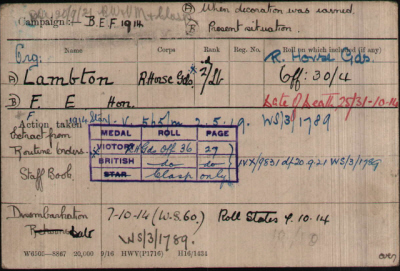 (A) When decoration was earned.
Campaign:- B.E.F. 1914.
(B) Present situation.
Name Corps Rank Reg. No. Roll on which included (if any)
(A) Lambton R. Horse Gds. 2/Lt R. Horse Gds.
Off: 30/4
(B) F. E. Hon. Date of Death 25/31-10-14
Action taken 1914 Star WS/3/1789
Extract from
Routine Orders
MEDAL ROLL PAGE
VICTORY R.H.Gds. Off. 36 27
BRITISH do do IVX/9831 d/20.9.21 WS/3/1789
STAR Clasp only
Staff Book
Disembarkation 7-10-14 (W.860.) Roll States 9.10.14
WS/3/1789.
W6505—8867 20,000 9/16 HWV(P1716) H16/1434
over